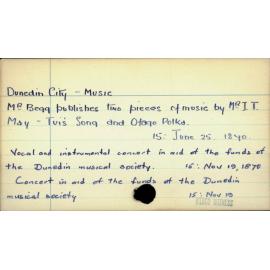 Dunedin City - Music
Mr Begg publishes two pieces of music by Mr J.T.
May - Tui's Song and Otago Polka.
15: June 25. 1870.
Vocal and instrumental concert in aid of the funds of
the Dunedin musical society. 15: Nov 19, 1870
Concert in aid of the funds of the Dunedin
musical society 15: Nov 19